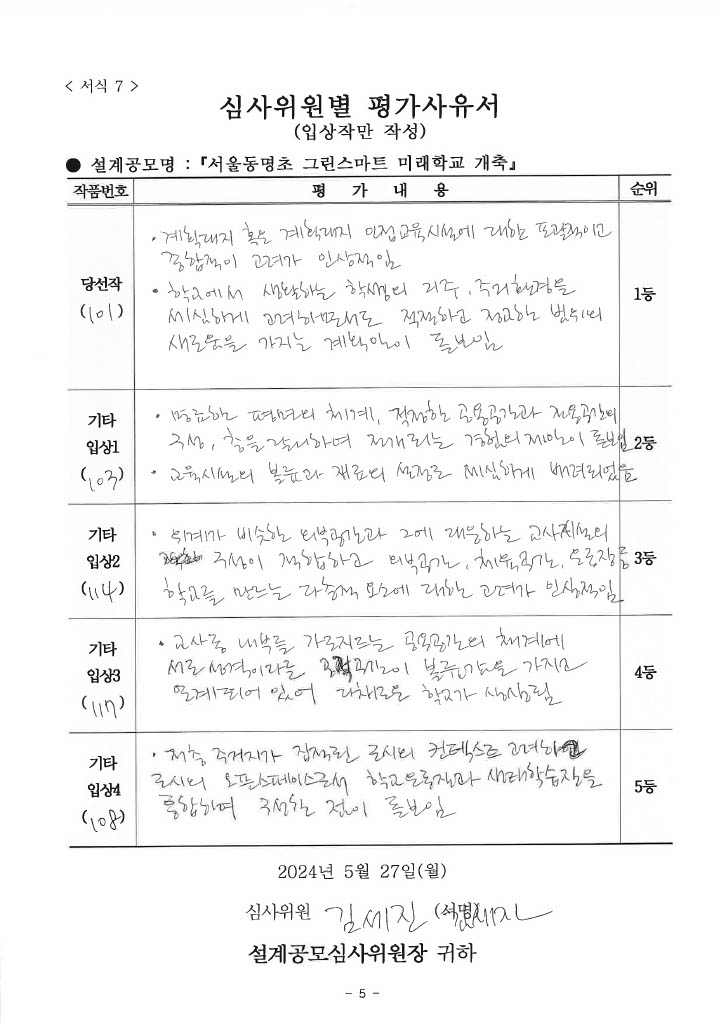 < 서식 7 >
심사위원별 평가사유서
(입상작만 작성)
● 설계공모명 : 『서울동명초 그린스마트 미래학교 개축』
작품번호 평 가 내 용 순위
당선작
(101)
• 계획대지 혹은 계획대지 인접교육시설에 대한 포괄적이고
종합적인 고려가 인상적임
• 학교에서 생활하는 학생의 거주, 주거환경을
세심하게 고려하므로서도 적절하고 정교한 범위의
새로움을 가지는 계획안이 돋보임
1등
기타
입상1
(103)
• 명료한 평면의 체계, 적정한 공용공간과 전용공간의
구성, 층을 달리하며 전개되는 경험의 제안이 돋보임
• 교육시설의 볼륨과 재료의 설정도 세심하게 배려되었음
2등
기타
입상2
(114)
• 위계가 비슷한 외부공간과 그에 대응하는 교사시설의
구성이 적합하고 외부공간, 체육공간, 운동장 등
학교를 만드는 다층적 요소에 대한 고려가 인상적임
3등
기타
입상3
(117)
• 교사동 내부를 가로지르는 공용공간의 체계에
서로 성격이 다른 공간이 볼륨감을 가지고
연계되어 있어 다채로운 학교가 상상됨
4등
기타
입상4
(108)
• 저층 주거지가 집적된 도시의 컨텍스트 고려하고
도시의 오픈스페이스로서 학교운동장과 생태학습장을
통합하며 구성한 점이 돋보임
5등
2024년 5월 27일(월)
심사위원 김세진 (서명)
설계공모심사위원장 귀하
- 5 -